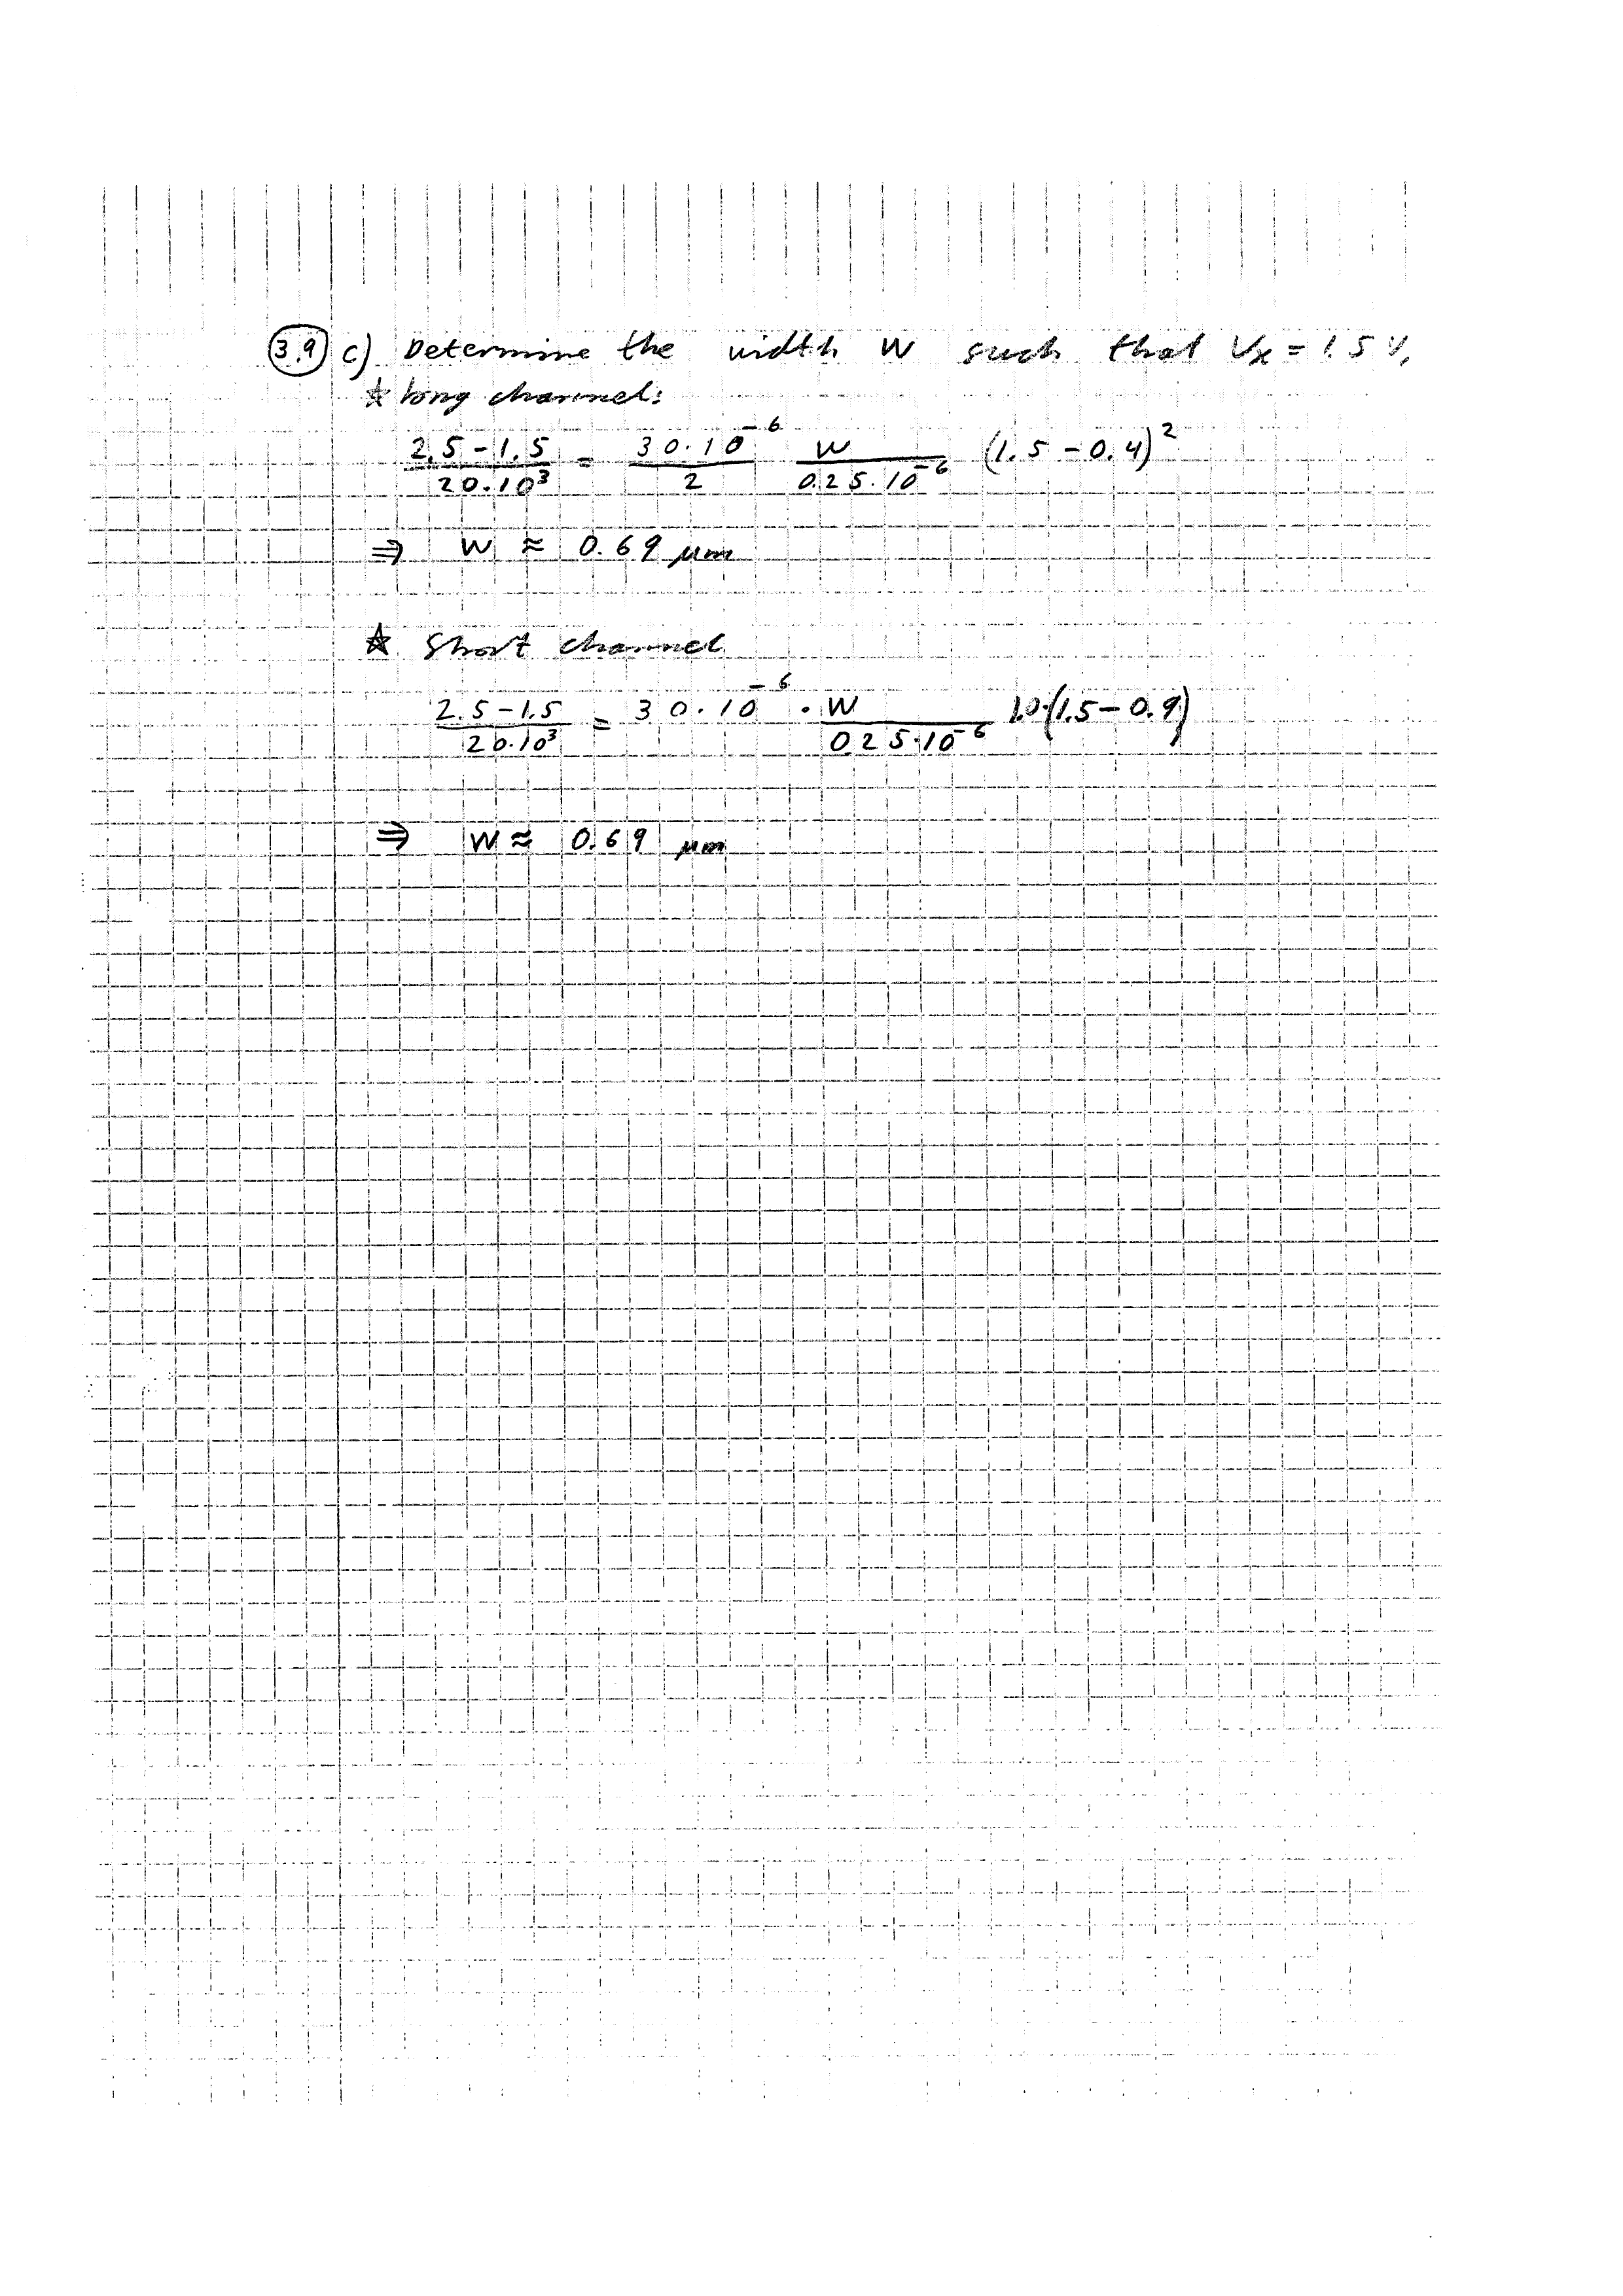 3.9 c) Determine the width W such that Vx = 1.5 V.
☆ long channel:
(2.5 - 1.5)/(20·10³) = (30·10⁻⁶)/2 W/(0.25·10⁻⁶) (1.5 - 0.4)²
⇒ W ≈ 0.69 μm
☆ Short channel
(2.5 - 1.5)/(20·10³) = 30·10⁻⁶ · W/(0.25·10⁻⁶) 1.0·(1.5 - 0.9)
⇒ W ≈ 0.69 μm